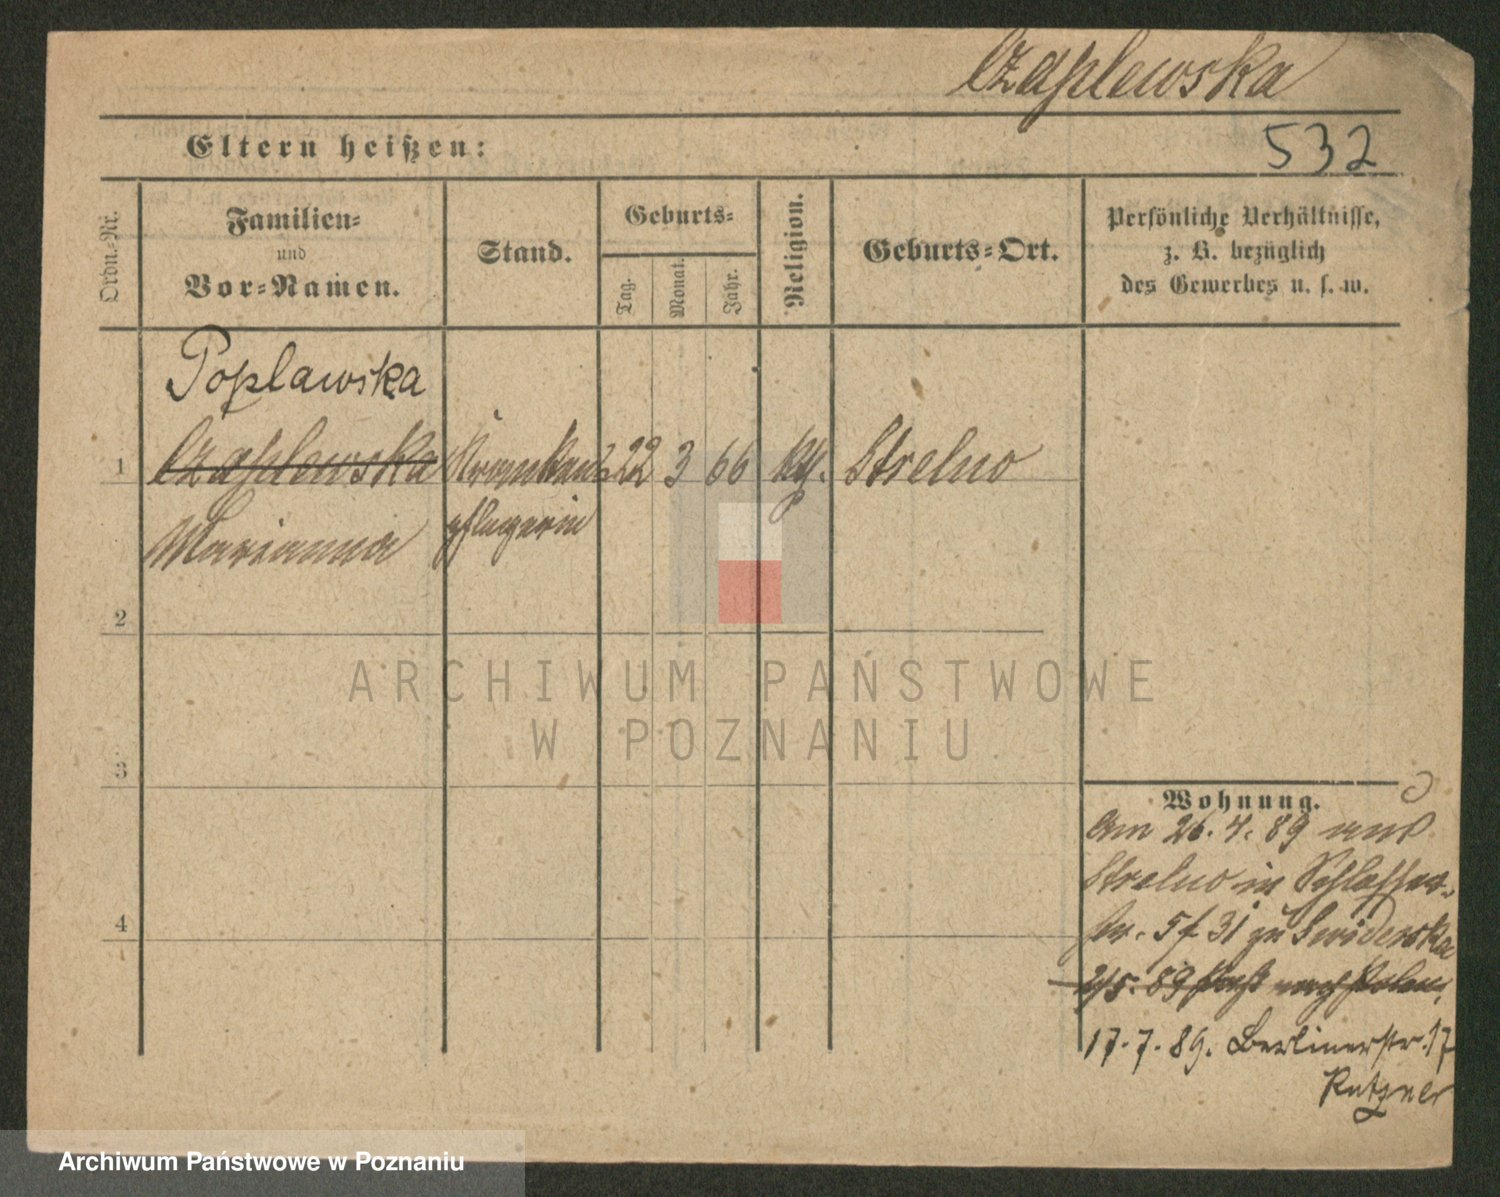 Czaplewska
Eltern heißen:
532
Ordn.-Nr.
Familien-
und
Vor-Namen.
Stand.
Geburts-
Tag.
Monat.
Jahr.
Religion.
Geburts-Ort.
Persönliche Verhältnisse,
z. B. bezüglich
des Gewerbes u. s. w.
Poplawska
1 Czaplewska Kranken- 22 3 66 Strelno
Marianna pflegerin
2
3
4
Wohnung.
Am 26. 4. 89 aus
Strelno in Schlosser-
str. 5 f 31 zu Swiderska
2/5. 89 nach Polen,
17. 7. 89. Berlinerstr. 17
Rutzner
ARCHIWUM PAŃSTWOWE
W POZNANIU
Archiwum Państwowe w Poznaniu